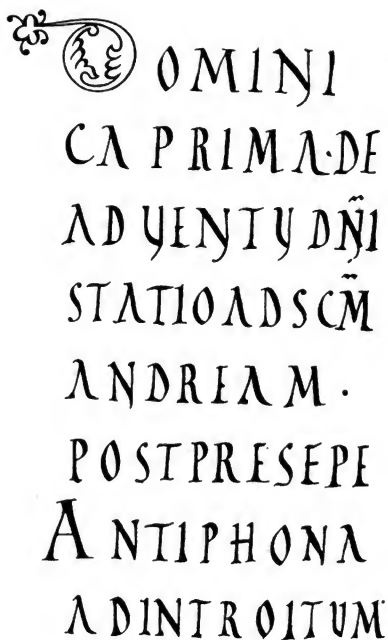 DOMINI
CA PRIMA·DE
ADUENTU DN̄I
STATIO AD SCM̄
ANDREAM·
POST PRESEPE
ANTIPHONA
AD INTROITUM·